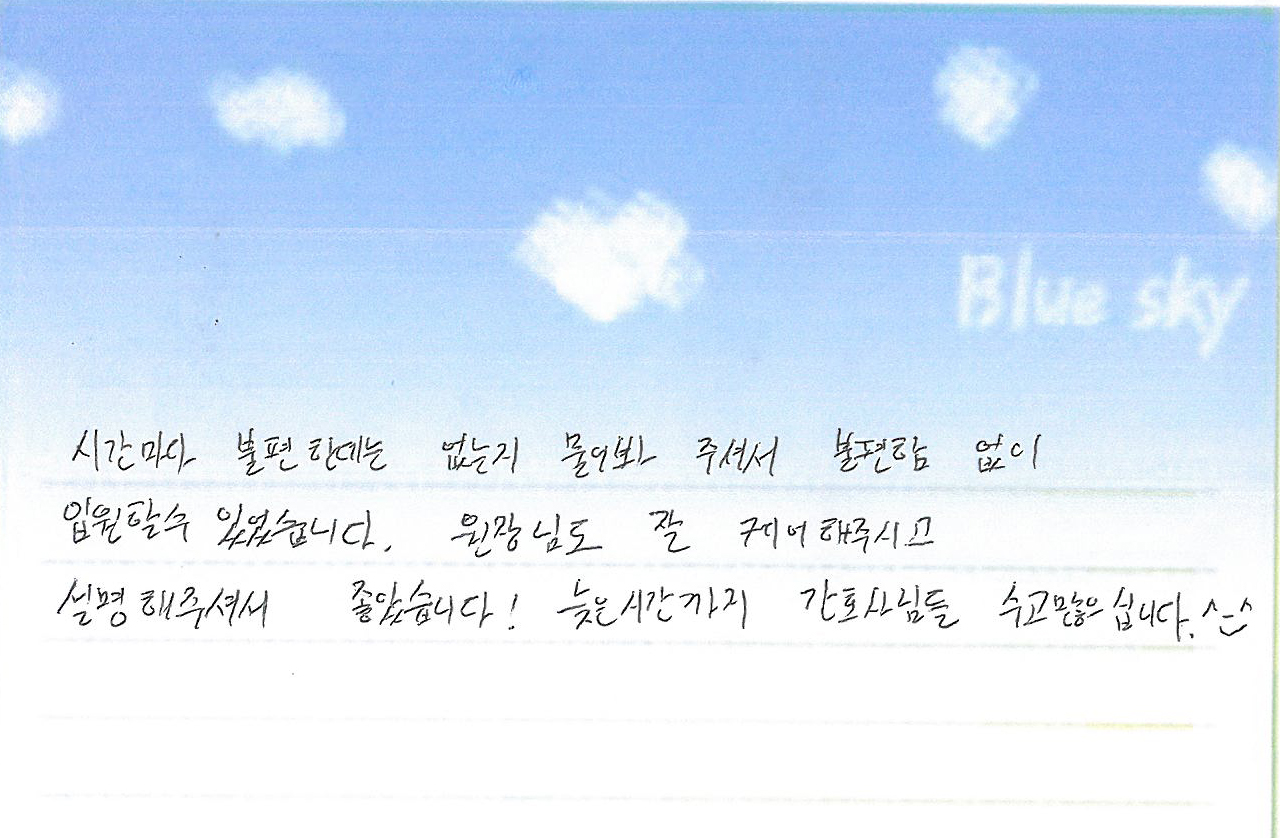 Blue sky
시간마다 불편한데는 없는지 물어봐 주셔서 불편함 없이
입원할수 있었습니다. 원장님도 잘 케어해주시고
설명해주셔서 좋았습니다! 늦은시간까지 간호사님들 수고많으십니다. ^-^